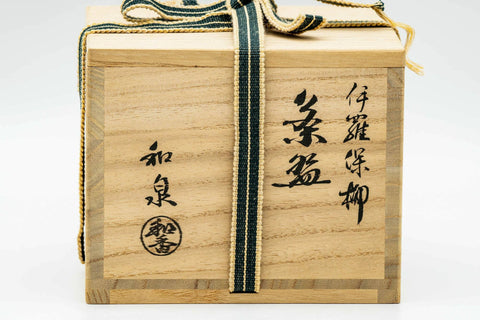 伊羅保柳
茶盌
和泉
和香